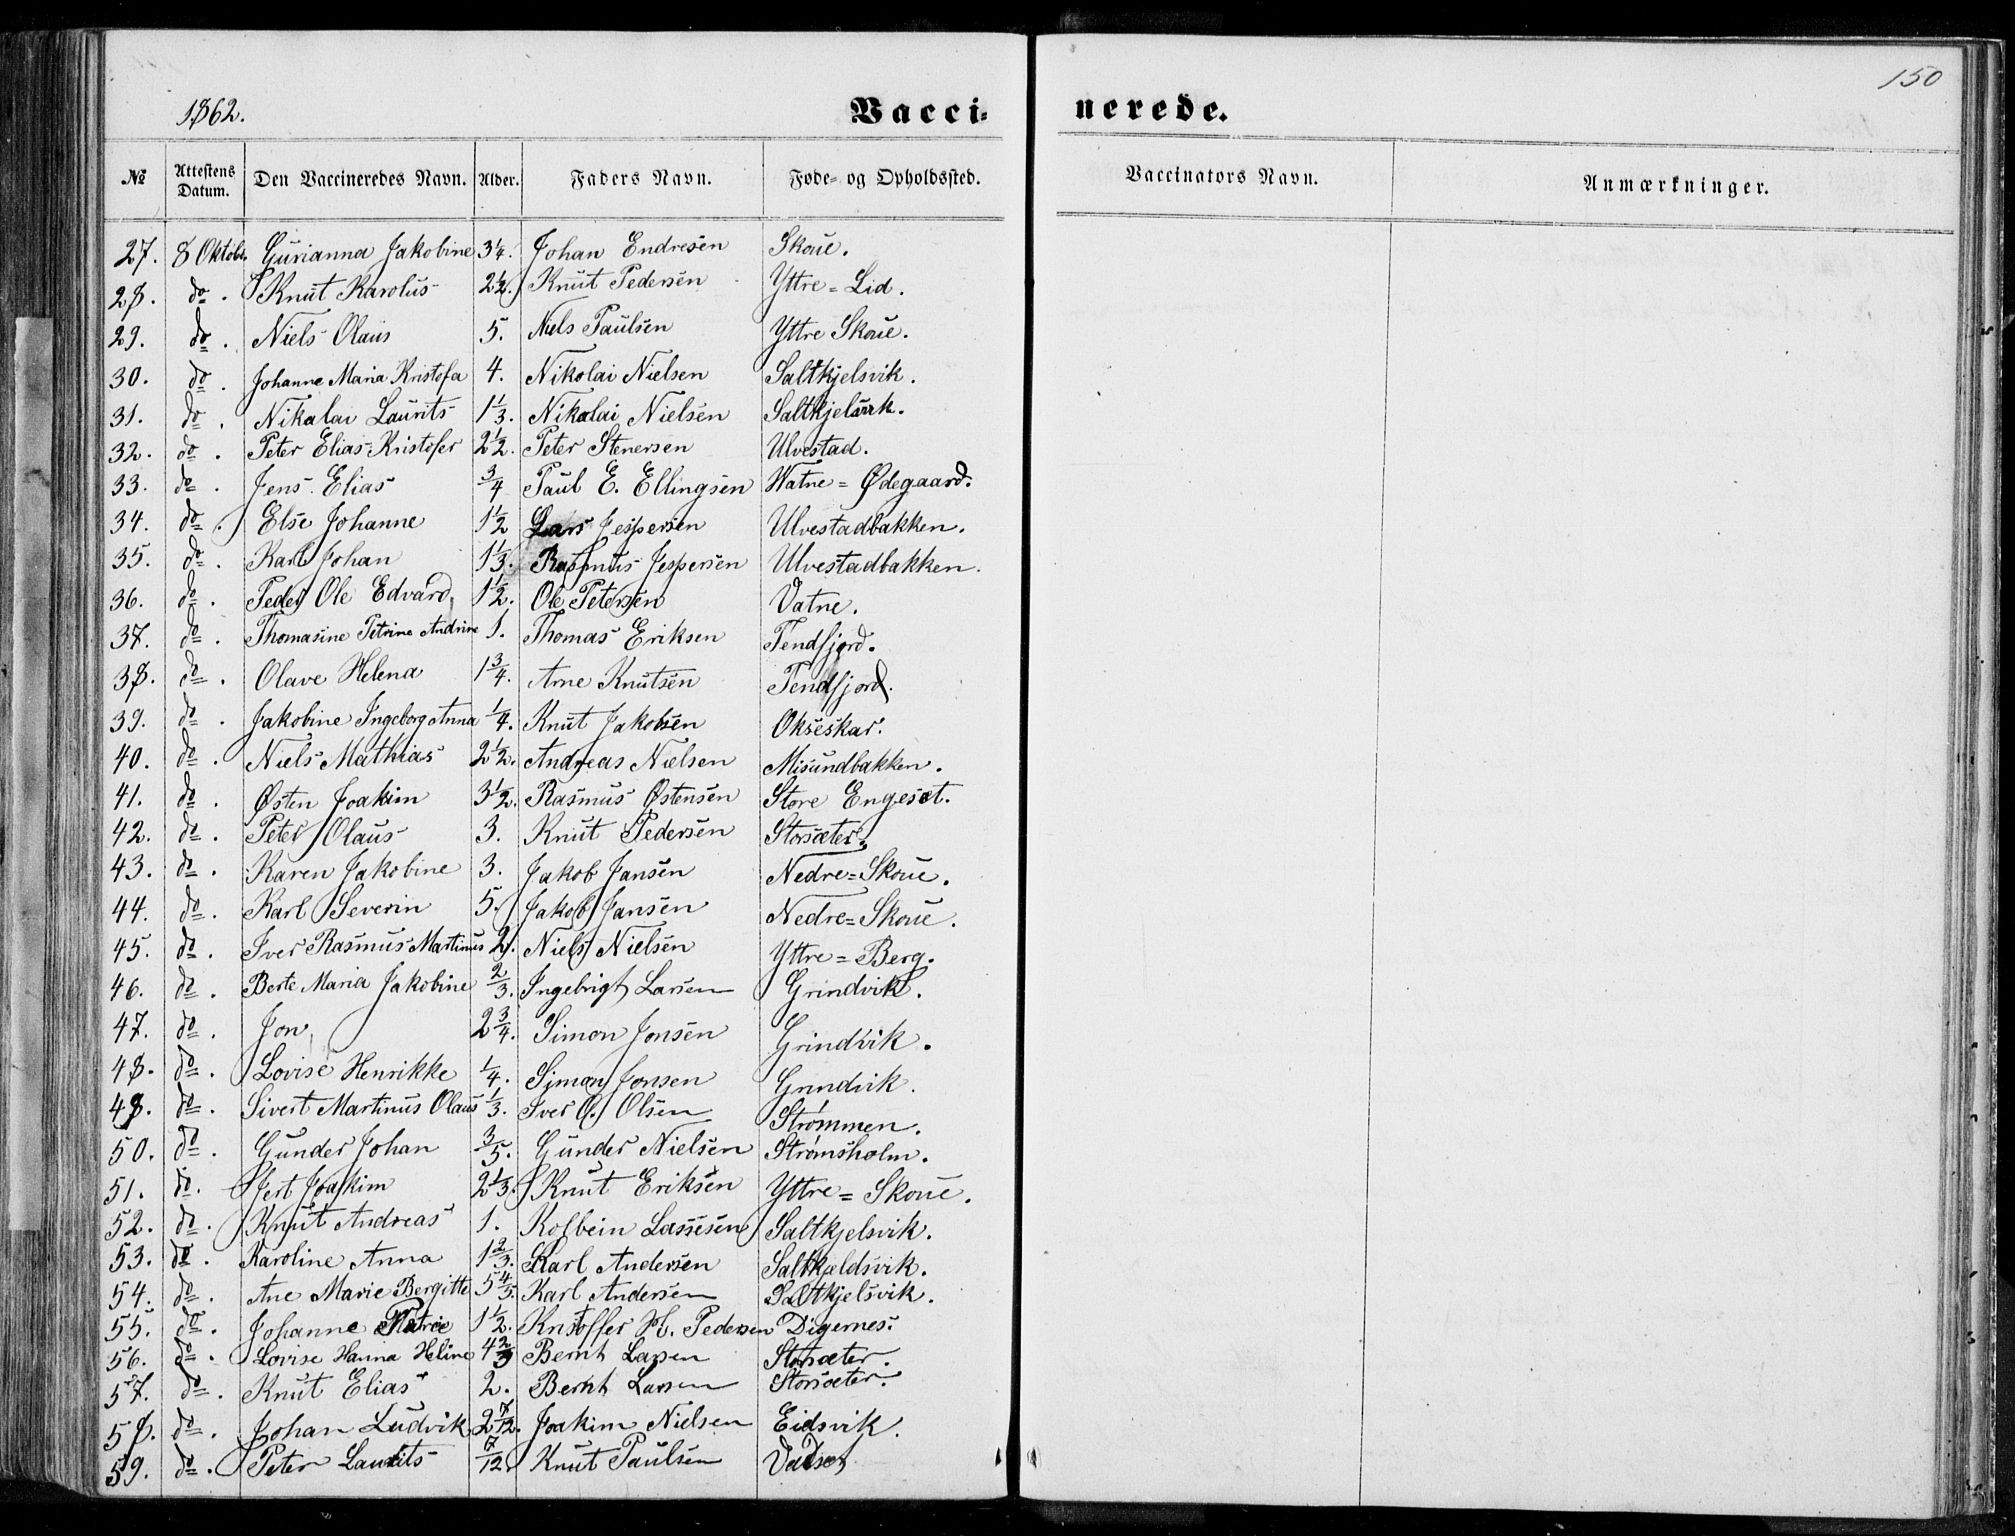 150
1862.
Vacci-
nerede.
No
Attestens Datum.
Den Vaccineredes Navn.
Alder.
Faders Navn.
Føde- og Opholdssted.
Vaccinators Navn.
Anmærkninger.
27. 8 Oktobr. Gurianna Jakobine 3 1/4. Johan Endresen Skoue.
28. do. Knut Karolus 2 1/2. Knut Pedersen Yttre=Lid.
29. do. Niels Olaus 5. Niels Paulsen Yttre Skoue.
30. do. Johanne Maria Kristofa 4. Nikolai Nielsen Saltkjelsvik.
31. do. Nikolai Laurits 1 1/3. Nikolai Nielsen Saltkjelsvik.
32. do. Peter Elias Kristofer 2 1/2. Peter Stenersen Ulvestad.
33. do. Jens Elias 3/4 Paul E. Ellingsen Watne=Ødegaard.
34. do. Else Johanne 1 1/2 Lars Jespersen Ulvestadbakken.
35. do. Karl Johan 1 1/3. Rasmus Jespersen Ulvestadbakken.
36. do. Peder Ole Edvard 1 1/2. Ole Petersen Vatne.
37. do. Thomasine Petrine Andrine 1. Thomas Eriksen Tendfjord.
38. do. Olave Helena 1 3/4. Arne Knutsen Tendfjord.
39. do. Jakobine Ingeborg Anna 1/4. Knut Jakobsen Okseskar.
40. do. Niels Mathias 2 1/2. Andreas Nielsen Misundbakken.
41. do. Østen Joakim 3 1/2. Rasmus Østensen Store Engeset.
42. do. Peter Olaus 3. Knut Pedersen Storsæter.
43. do. Karen Jakobine 3. Jakob Jansen Nedre=Skoue.
44. do. Karl Severin 5. Jakob Jansen Nedre=Skoue.
45. do. Iver Rasmus Martinus 2. Niels Nielsen Yttre=Berg.
46. do. Berte Maria Jakobine 2/3. Ingebrigt Larsen Grindvik.
47. do. Jon 2 3/4. Simon Jonsen Grindvik.
48. do. Lovise Henrikke 1/4. Simon Jonsen Grindvik.
48. do. Sivert Martinus Olaus 1/3. Iver O. Olsen Strømmen.
50. do. Gunder Johan 3/5. Gunder Nielsen Strømsholm.
51. do. Joakim 2 1/3. Knut Eriksen Yttre=Skoue.
52. do. Knut Andreas 1. Kolbein Lassesen Saltkjelsvik.
53. do. Karoline Anna 1 2/3. Karl Andersen Saltkjeldsvik.
54. do. Ane Marie Bergitte 5 4/5. Karl Andersen Saltkjelsvik.
55. do. Johanne 1 1/2. Kristoffer H. Pedersen Digernes.
56. do. Lovise Hanna Heline 4 2/3 Bernt Larsen Storsæter.
57. do. Knut Elias 2. Bernt Larsen Storsæter.
58. do. Johan Ludvik 2 7/12. Joakim Nielsen Eidsvik.
59. do. Peter Laurits 7/12 Knut Paulsen Vadset